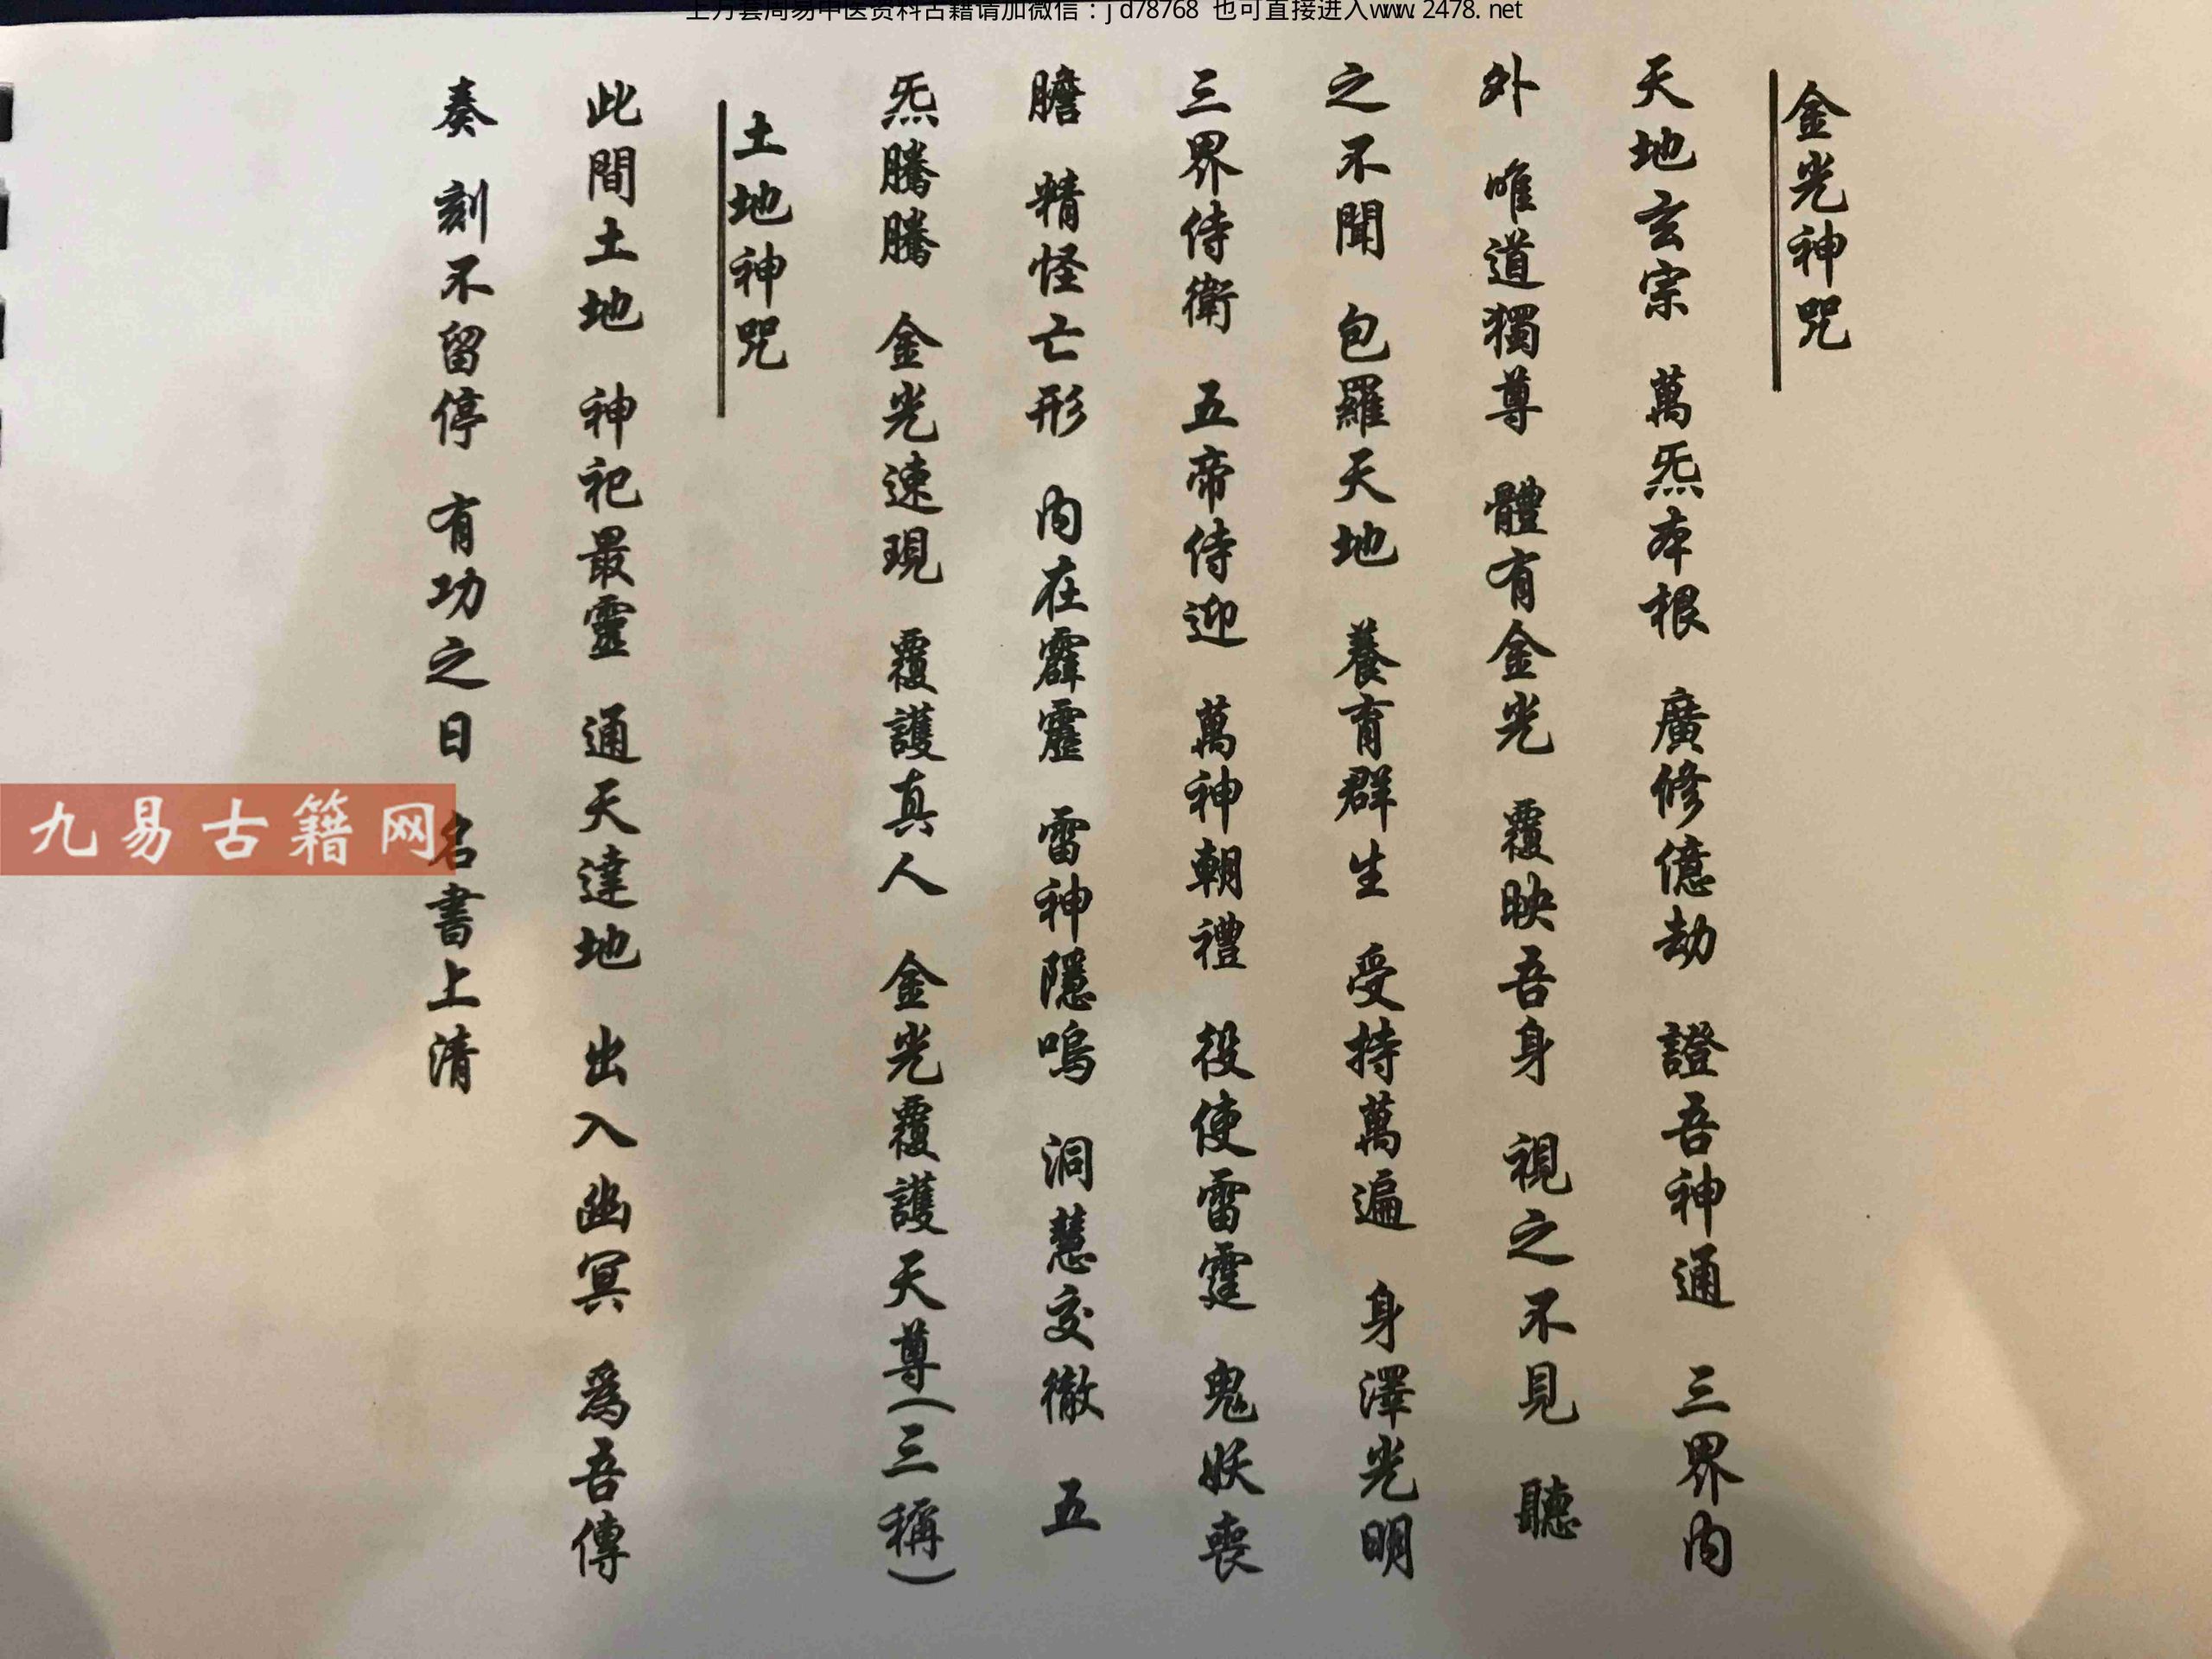 上万套周易中医资料古籍请加微信：jd78768 也可直接进入www.2478.net
金光神咒
天地玄宗 萬炁本根 廣修億劫 證吾神通 三界內
外 唯道獨尊 體有金光 覆映吾身 視之不見 聽
之不聞 包羅天地 養育群生 受持萬遍 身澤光明
三界侍衛 五帝侍迎 萬神朝禮 役使雷霆 鬼妖喪
膽 精怪亡形 內在霹靂 雷神隱鳴 洞慧交徹 五
炁騰騰 金光速現 覆護真人 金光覆護天尊(三稱)
土地神咒
此間土地 神祀最靈 通天達地 出入幽冥 爲吾傳
奏 刻不留停 有功之日 名書上清
九易古籍网